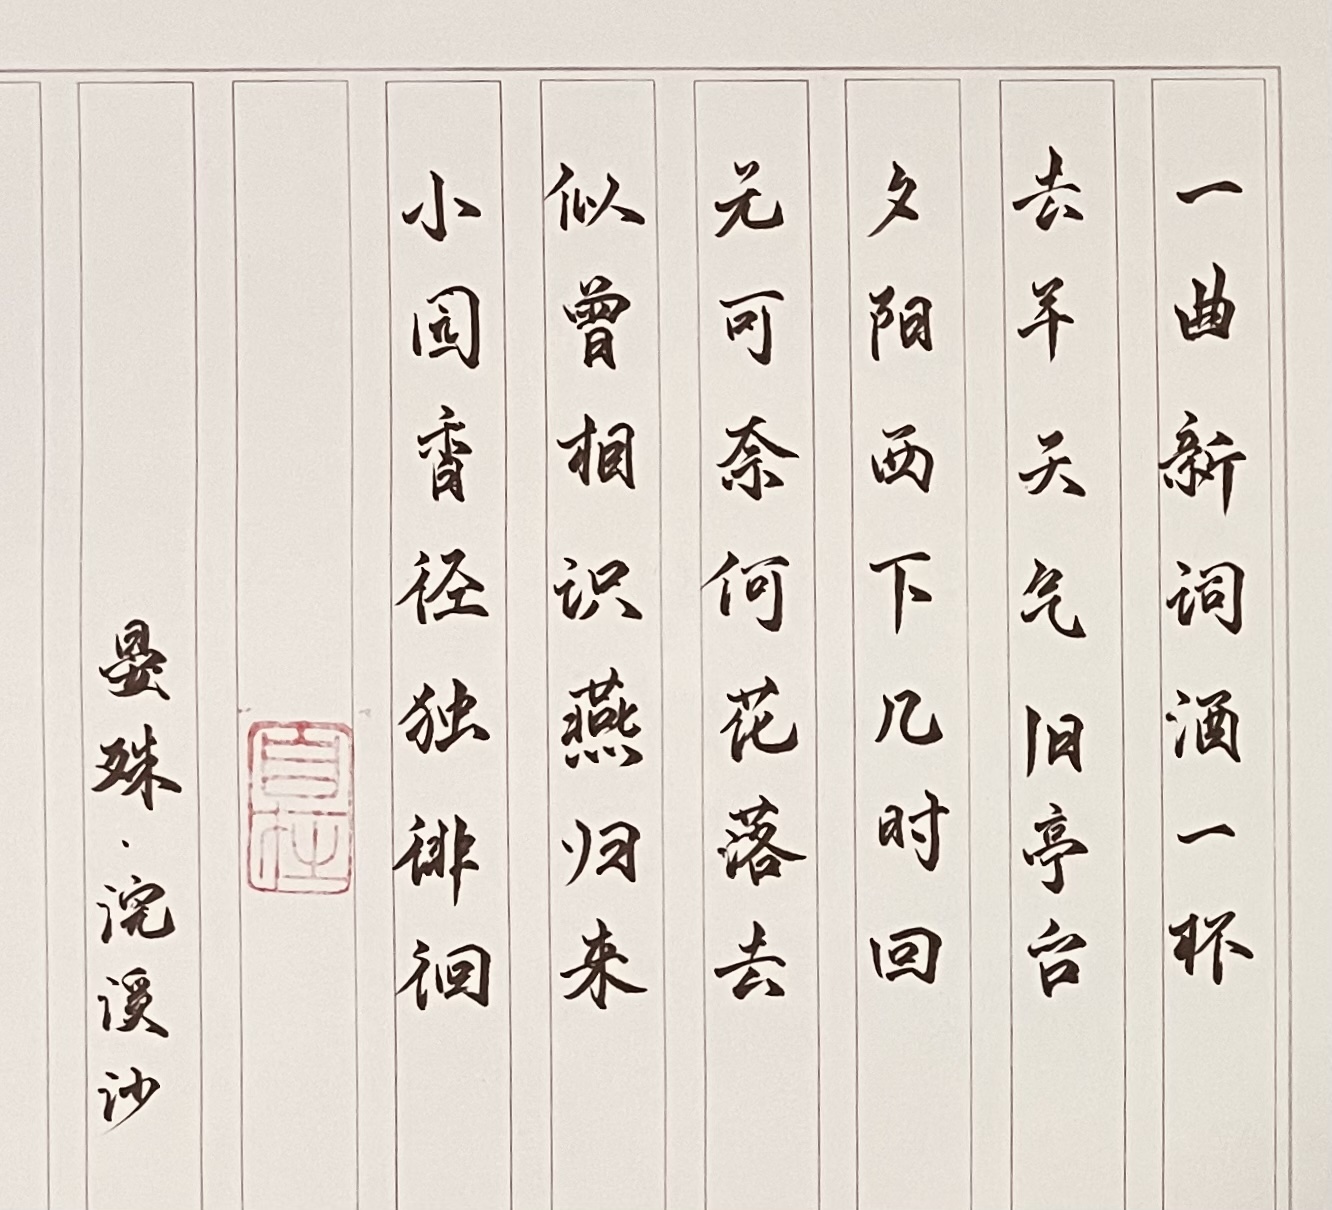 一曲新词酒一杯
去年天气旧亭台
夕阳西下几时回
无可奈何花落去
似曾相识燕归来
小园香径独徘徊
自在
晏殊·浣溪沙